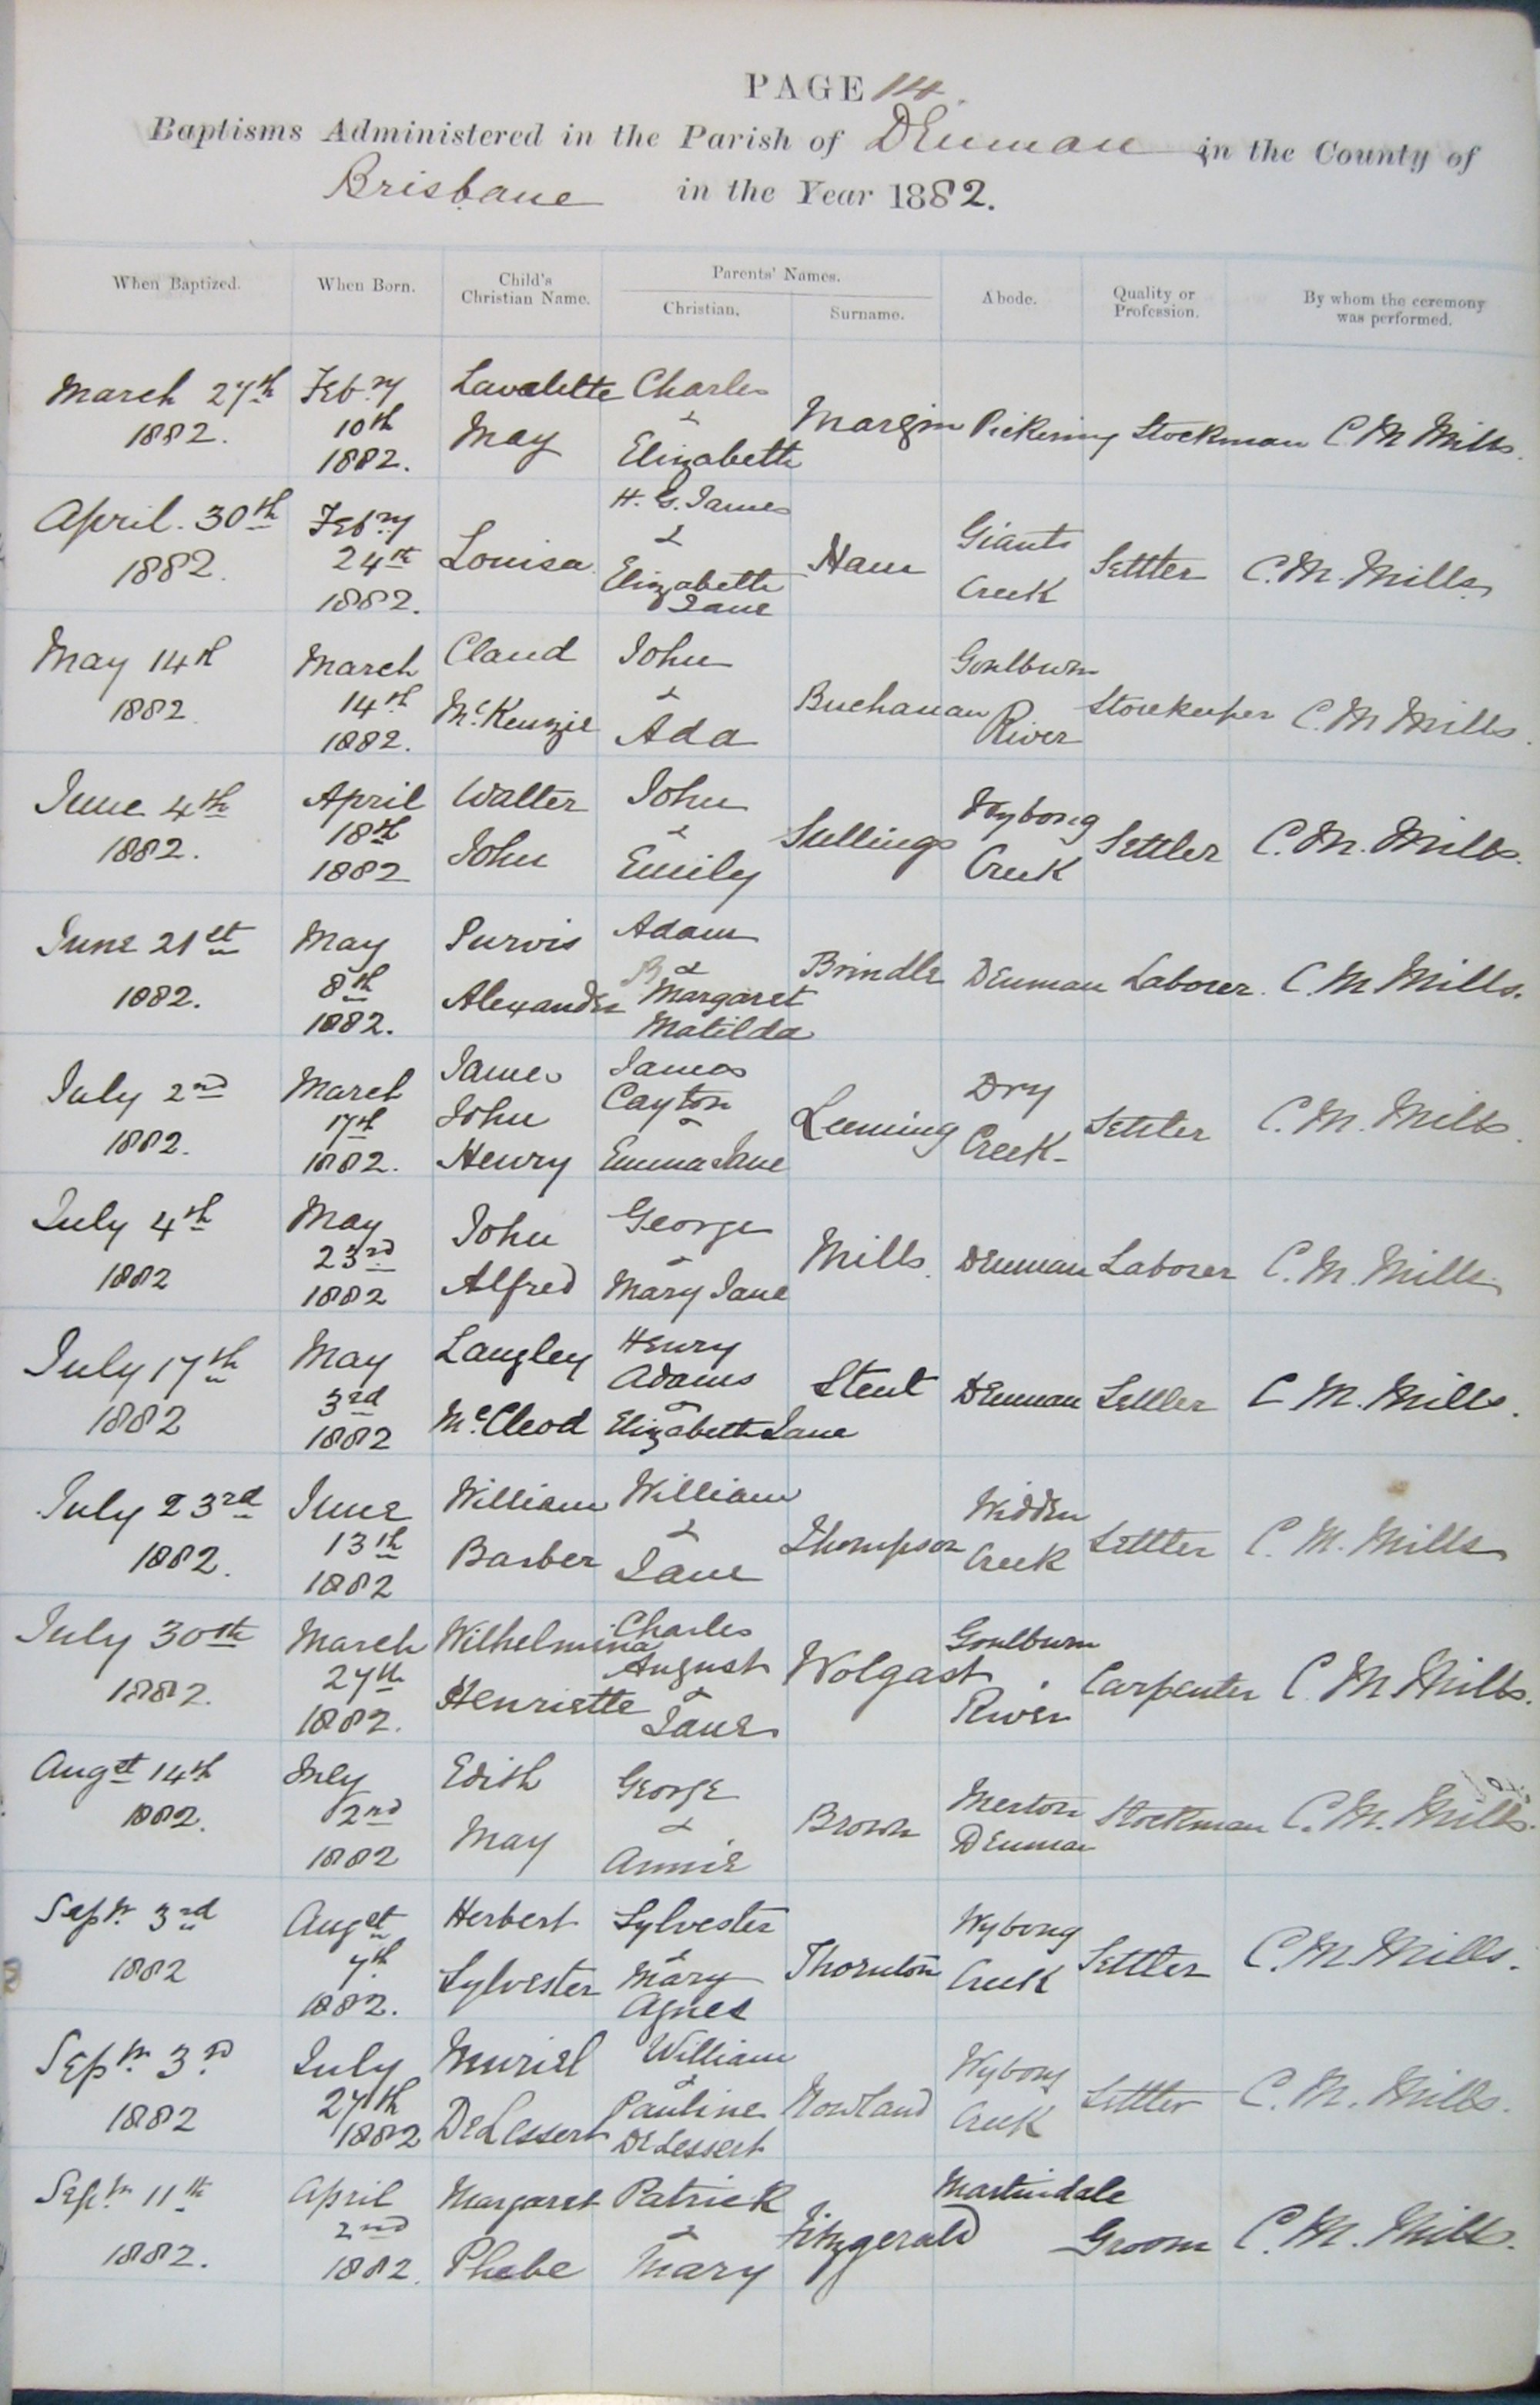 PAGE 14.
Baptisms Administered in the Parish of Denman in the County of
Brisbane in the Year 1882.
When Baptized. When Born. Child's Christian Name. Parents' Names. Christian. Surname. Abode. Quality or Profession. By whom the ceremony was performed.
March 27th 1882. Feb.ry 10th 1882. Lavalette May Charles & Elizabeth Margin Pickering Stockman C. M Mills.
April. 30th 1882. Feb.ry 24th 1882. Louisa H. G. James & Elizabeth Jane Ham Giants Creek Settler C. M. Mills.
May 14th 1882. March 14th 1882. Claud McKenzie John & Ada Buchanan Goulburn River Storekeeper C. M Mills.
June 4th 1882. April 18th 1882 Walter John John & Emily Sullings Wybong Creek Settler C. M. Mills.
June 21st 1882. May 8th 1882. Purvis Alexander Adam & Margaret Matilda Brindle Denman Laborer. C. M Mills.
July 2nd 1882. March 17th 1882. James John Henry James Cayton & Emma Jane Leeming Dry Creek Settler C. M. Mills.
July 4th 1882 May 23rd 1882 John Alfred George & Mary Jane Mills. Denman Laborer C. M. Mills.
July 17th 1882 May 3rd 1882 Langley McCleod Henry Adams & Elizabeth Jane Stent Denman Settler C M. Mills.
July 23rd 1882. June 13th 1882 William Barber William & Jane Thompson Widden Creek Settler C. M. Mills
July 30th 1882. March 27th 1882. Wilhelmina Henriette Charles August & Jane Wolgast Goulburn River Carpenter C. M Mills.
Augst 14th 1882. July 2nd 1882 Edith May George & Annie Brown Merton Denman Stockman C. M. Mills.
Sepr. 3rd 1882 Augst 7th 1882. Herbert Sylvester Sylvester & Mary Agnes Thornton Wybong Creek Settler C. M Mills.
Sepr. 3rd 1882 July 27th 1882 Muriel DeLessert William & Pauline DeLessert Nowland Wybong Creek Settler C. M. Mills.
Sepr. 11th 1882. April 2nd 1882. Margaret Phebe Patrick & Mary Fitzgerald Martindale Groom C. M. Mills.